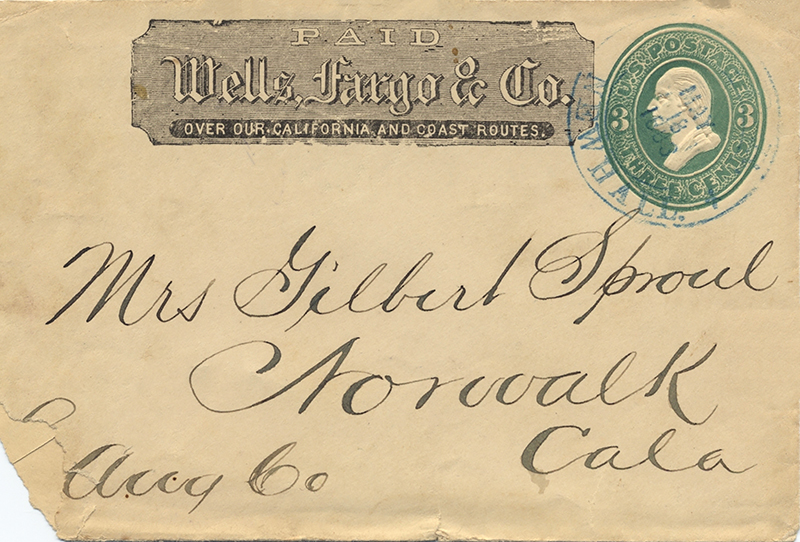 PAID
Wells, Fargo & Co.
OVER OUR CALIFORNIA AND COAST ROUTES.
U.S. POSTAGE
3 3
THREE CENTS
NEWHALL.
MAY
18
Mrs Gilbert Sproul
Norwalk
Cala
Ang Co